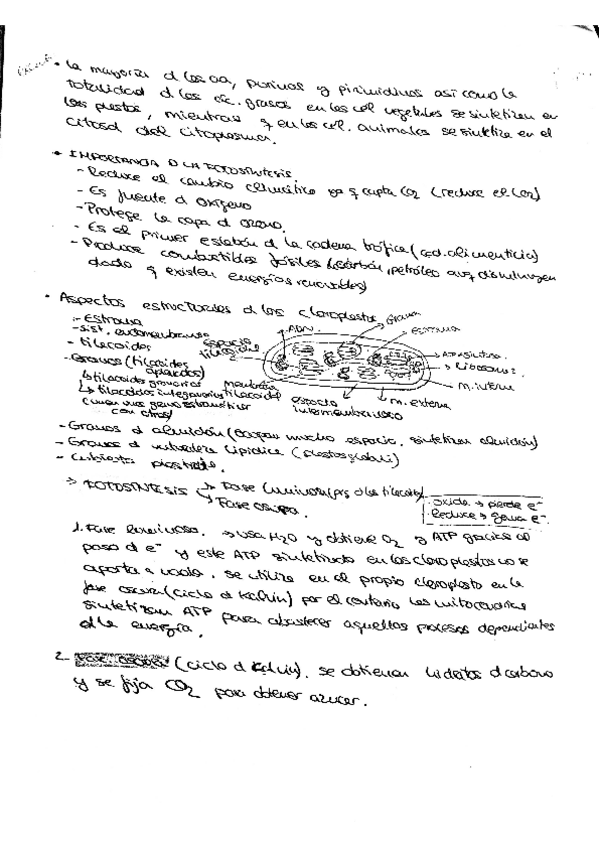 • La mayoría d los aa, purinas y pirimidinas así como la
totalidad d los ác. grasos en las cél vegetales se sintetizan en
los plastos, mientras q en las cél. animales se sintetiza en el
citosol del citoplasma.
• IMPORTANCIA D LA FOTOSÍNTESIS.
- Reduce el cambio climático ya q capta CO2 (reduce el CO2)
- Es fuente d oxígeno
- Protege la capa d ozono.
- Es el primer eslabón d la cadena trófica (cad. alimenticia)
- Produce combustibles fósiles (carbón, petróleo aunq disminuyen
dado q existen energías renovables)
• Aspectos estructurales d los cloroplastos
- Estroma
- sist. endomembranoso
- tilacoides
- Granas (tilacoides apilados)
↳ tilacoides
↳ tilacoides intergranas
(unen una grana
con otras)
ADN
Grana
Estroma
espacio
Ribosomas
m. interna
m. externa
espacio
intermembranoso
membrana
tilacoide
- Granos d almidón (ocupan mucho espacio, sintetizan almidón)
- Granos d naturaleza lipídica (plastoglóbuli)
- Cubierta
→ FOTOSÍNTESIS → Fase luminosa (
→ Fase oscura.
Oxida → pierde e-
Reduce → gana e-
1. Fase luminosa. → usa H2O y obtiene O2 y ATP gracias al
paso d e- y este ATP sintetizado en los cloroplastos no se
aporta a nada, se utiliza en el propio cloroplasto en la
fase oscura (ciclo d Kalvin) por el contrario las mitocondrias
sintetizan ATP para abastecer aquellos procesos dependientes
d la energía.
2. Fase oscura (ciclo d Kalvin). se obtienen hidratos d carbono
y se fija CO2 para obtener azúcar.